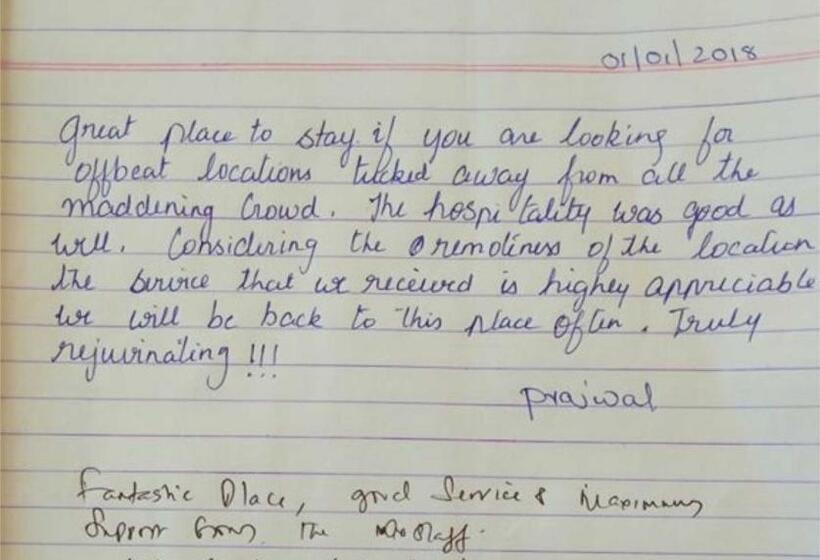 01/01/2018
Great place to stay if you are looking for
offbeat locations tucked away from all the
maddening Crowd. The hospitality was good as
well. Considering the remoteness of the location
the service that we received is highly appreciable
we will be back to this place often. Truly
rejuvinating !!!
prajwal
Fantastic Place, good Service & Maximum
Support from The Staff.